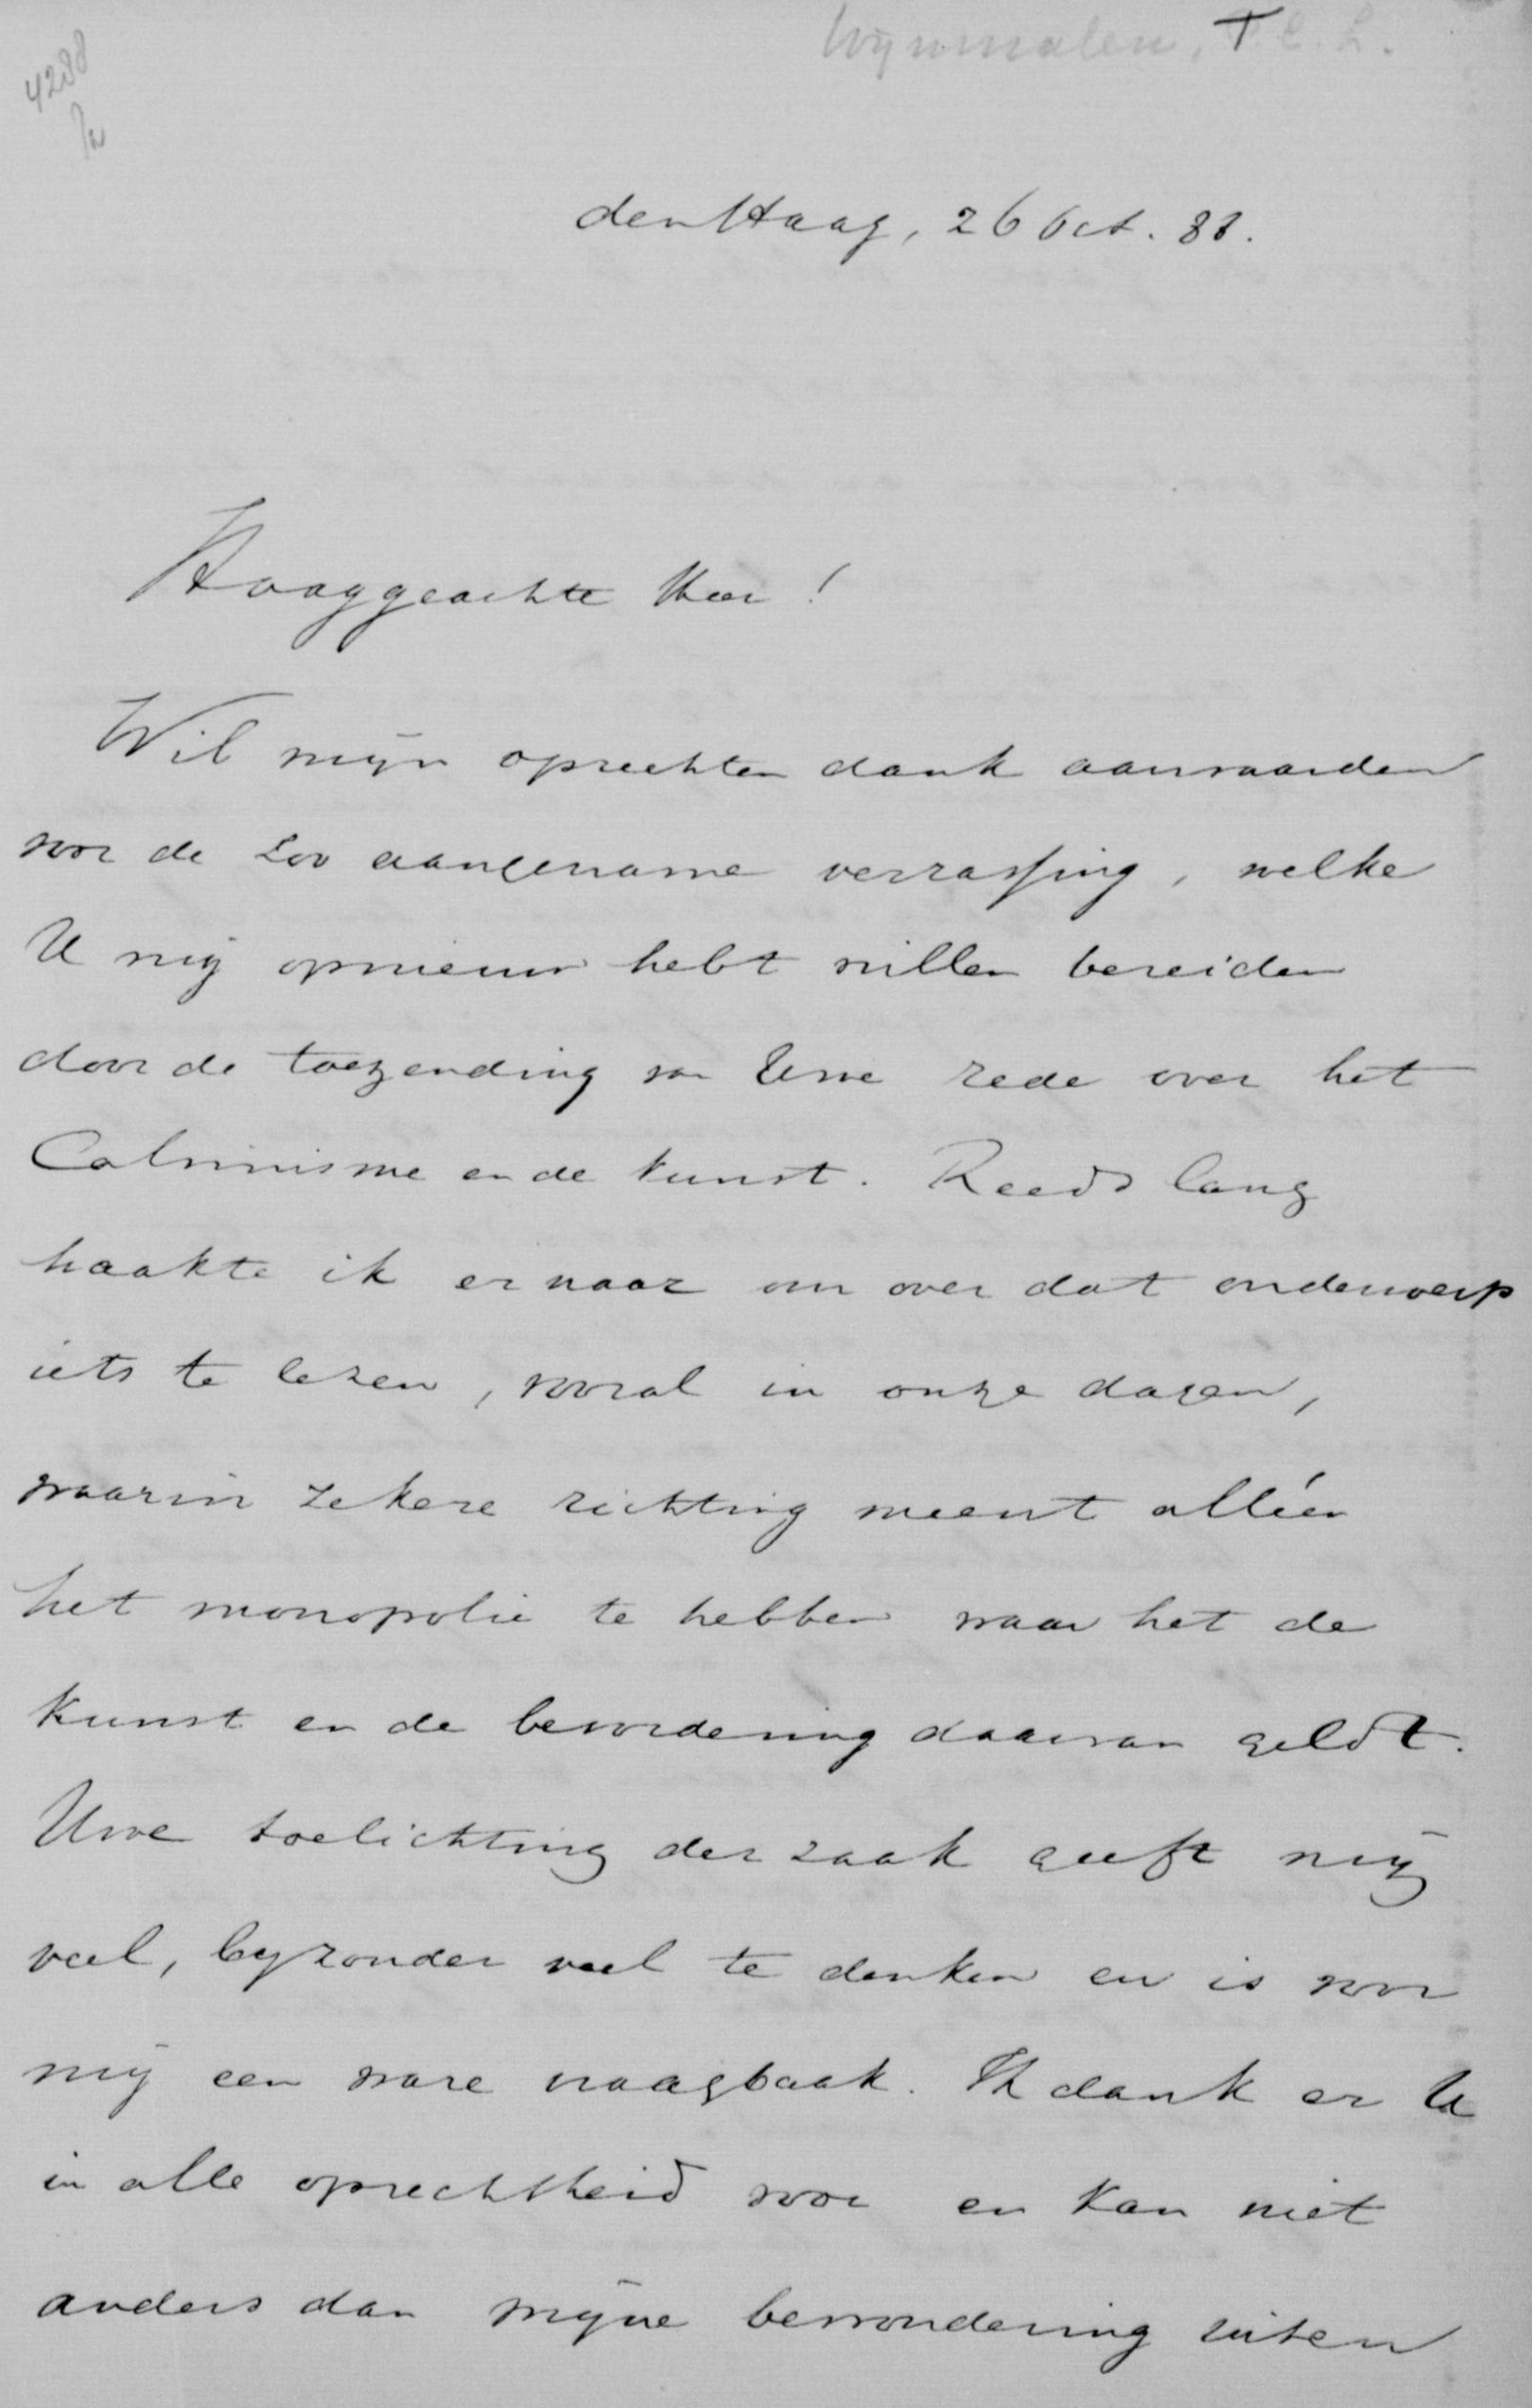 Wijnmalen, T.C.L.
4288
den Haag, 26 Oct. 88.
Hooggeachte Heer!
Wil mijn oprechten dank aanvaarden
voor de zoo aangename verrassing, welke
U mij opnieuw hebt willen bereiden
door de toezending van Uwe rede over het
Calvinisme en de Kunst. Reeds lang
haakte ik er naar om over dat onderwerp
iets te lezen, vooral in onze dagen,
waarin zekere richting meent alléén
het monopolie te hebben waar het de
Kunst en de bevordering daarvan geldt.
Uwe toelichting der zaak geeft mij
veel, byzonder veel te denken en is voor
mij een ware vraagbaak. Ik dank er U
in alle oprechtheid voor en kan niet
anders dan mijne bewondering uiten